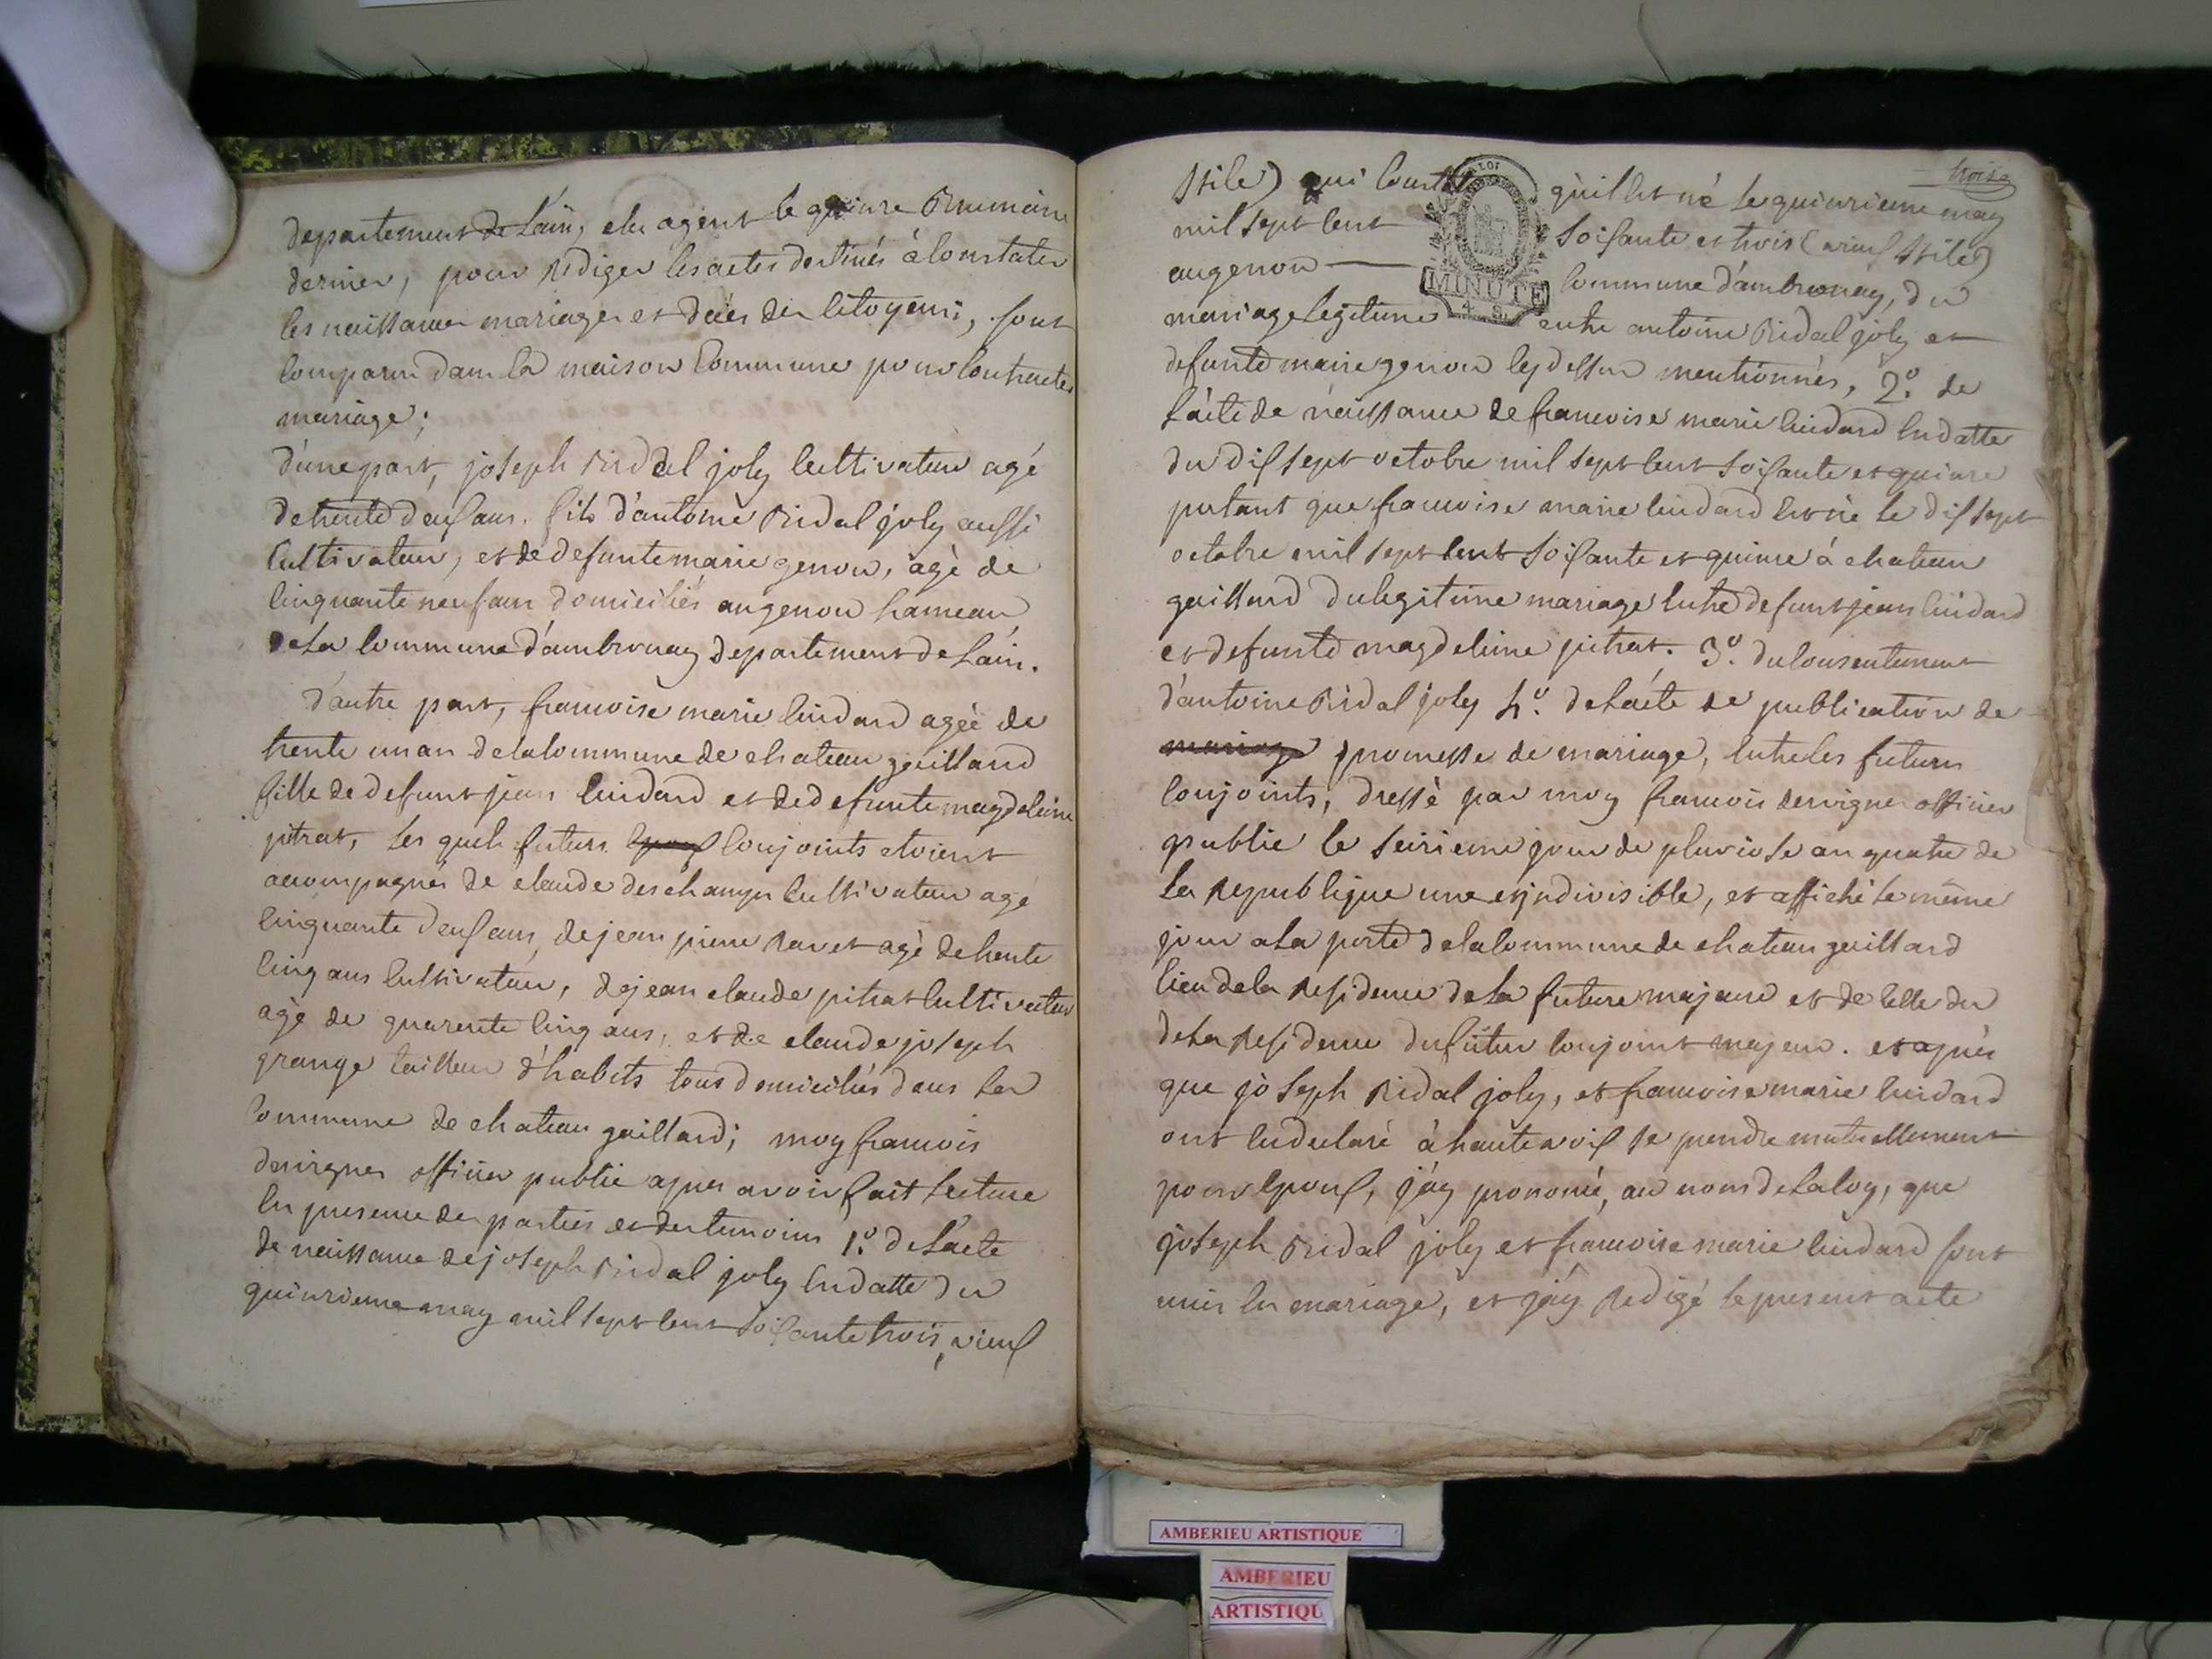 departement de l'ain, elu agent le quinze Brumaire
dernier, pour rediger les actes destinés à constater
les naissances mariages et decès des citoyens, sont
comparus dans la maison commune pour contracter
mariage;
d'une part, joseph ridal joly cultivateur agé
de trente deux ans. fils d'antoine ridal joly aussi
cultivateur, et de defunte marie genou, agè de
cinquante neuf ans domiciliés au genou hameau
de la commune d'ambronay departement de l'ain.
d'autre part, francoise marie cuidard agée de
trente un an de la commune de chateau gaillard
fille de defunt jean cuidard et de defunte magdeleine
pitrat, les quels futurs conjoints etoient
accompagnés de claude deschamps cultivateur agé
cinquante deux ans, de jean pierre ravet agé de trente
cinq ans cultivateur, de jean claude pitrat cultivateur
agé de quarente cinq ans, et de claude joseph
grange tailleur d'habits tous domiciliés dans la
commune de chateau gaillard; moy francois
dervignes officier public apres avoir fait lecture
en presence des parties et des temoins 1.º de l'acte
de naissance de joseph ridal joly en datte du
quinzieme may mil sept cent soixante trois, vieux
troize
stile) qui qu'il est né le quinzieme may
mil sept cent soixante et trois (vieux stile)
au genou commune d'ambronay, du
mariage legitime entre antoine ridal joly et
LOI
MINUTE
defunte marie genou cy dessus mentionnés, 2.º de
l'acte de naissance de francoise marie cuidard en datte
du dix sept octobre mil sept cent soixante et quinze
portant que francoise marie cuidard est né le dix sept
octobre mil sept cent soixante et quinze à chateau
gaillard du legitime mariage entre defunt jean cuidard
et defunte magdeleine pitrat. 3.º du consentement
d'antoine ridal joly 4.º de l'acte de publication de
mariage promesse de mariage, entre les futurs
conjoints, dressé par moy francois dervignes officier
public le seizieme jour de pluviose an quatre de
la republique une et indivisible, et affiché le même
jour a la porte de la commune de chateau gaillard
lieu de la residence de la future majeure et de celle du
de la residence du futur conjoint majeur. et après
que joseph ridal joly, et francoise marie cuidard
ont eu declaré à haute voix se prendre mutuellement
pour epoux, j'ay prononcé, au nom de la loy, que
joseph ridal joly et francoise marie cuidard sont
unis en mariage, et j'ay redigé le present acte
AMBERIEU ARTISTIQUE
AMBERIEU
ARTISTIQU